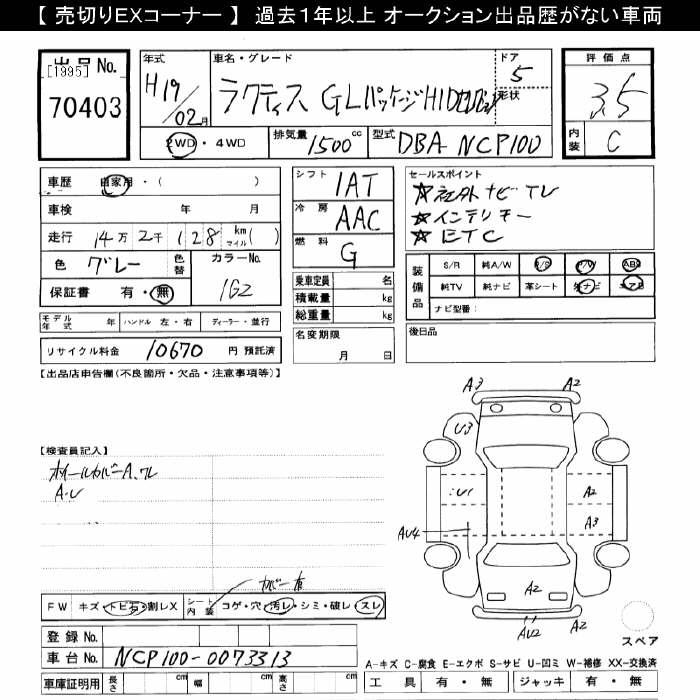 【 売切りEXコーナー 】 過去1年以上 オークション出品歴がない車両
出品 No.
[1995]
70403
年式
H19/02月
車名・グレード
ラクティス GLパッケージHID
ドア
5
形状
評価点
3.5
2WD・4WD
排気量
1500cc
型式
DBA NCP100
内装
C
車歴
自家用・( )
車検
年 月
走行
14万2千128
km
マイル
( )
色
グレー
色替
カラーNo.
1G2
保証書
有・無
モデル年式
年
ハンドル
左・右
ディーラー・並行
リサイクル料金
10670
円 預託済
シフト
IAT
冷房
AAC
燃料
G
乗車定員
名
積載量
kg
総重量
kg
名変期限
月 日
セールスポイント
☆社外ナビTV
☆インテリキー
☆ETC
装備品
S/R
純A/W
P/S
P/W
ABS
純TV
純ナビ
革シート
ナビ型番:
後日品
【出品店申告欄(不良箇所・欠品・注意事項等)】
【検査員記入】
ホイールカバーA、ワレ
A・U
カバー有
FW
キズ・トビ石・割レX
シート内装
コゲ・穴・汚レ・シミ・破レ・スレ
登録No.
車台No.
NCP100-0073313
車庫証明用
長さ
cm
幅
cm
高さ
cm
A3
A2
U3
U1
A2
AU4
A3
A2
AU2
A2
スペア
A-キズ C-腐食 E-エクボ S-サビ U-凹ミ W-補修 XX-交換済
工具
有・無
ジャッキ
有・無